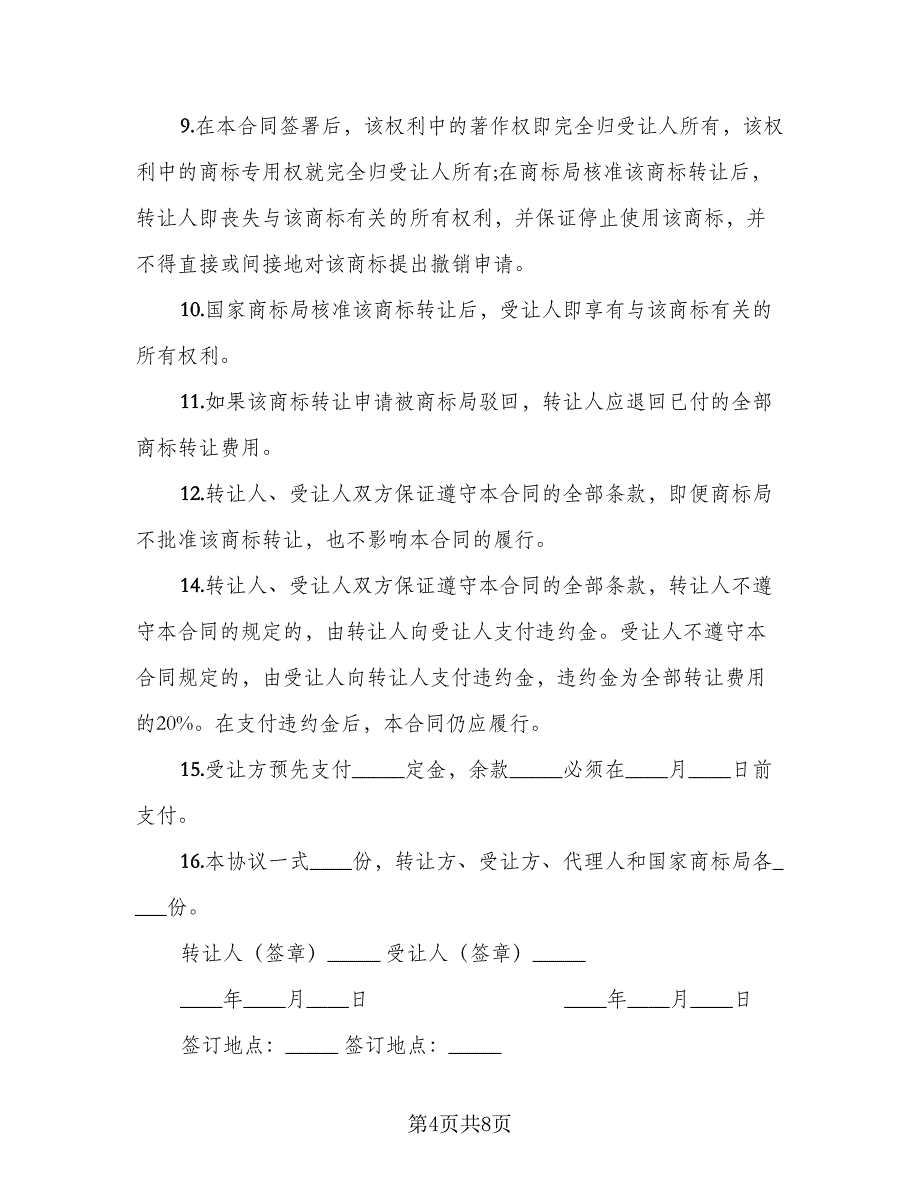 9.在本合同签署后，该权利中的著作权即完全归受让人所有，该权
利中的商标专用权就完全归受让人所有;在商标局核准该商标转让后，
转让人即丧失与该商标有关的所有权利，并保证停止使用该商标，并
不得直接或间接地对该商标提出撤销申请。
10.国家商标局核准该商标转让后，受让人即享有与该商标有关的
所有权利。
11.如果该商标转让申请被商标局驳回，转让人应退回已付的全部
商标转让费用。
12.转让人、受让人双方保证遵守本合同的全部条款，即便商标局
不批准该商标转让，也不影响本合同的履行。
14.转让人、受让人双方保证遵守本合同的全部条款，转让人不遵
守本合同的规定的，由转让人向受让人支付违约金。受让人不遵守本
合同规定的，由受让人向转让人支付违约金，违约金为全部转让费用
的20%。在支付违约金后，本合同仍应履行。
15.受让方预先支付_____定金，余款_____必须在____月____日前
支付。
16.本协议一式____份，转让方、受让方、代理人和国家商标局各_
___份。
转让人（签章）_____ 受让人（签章）_____
____年____月____日 ____年____月____日
签订地点：_____ 签订地点：_____
第4页共8页